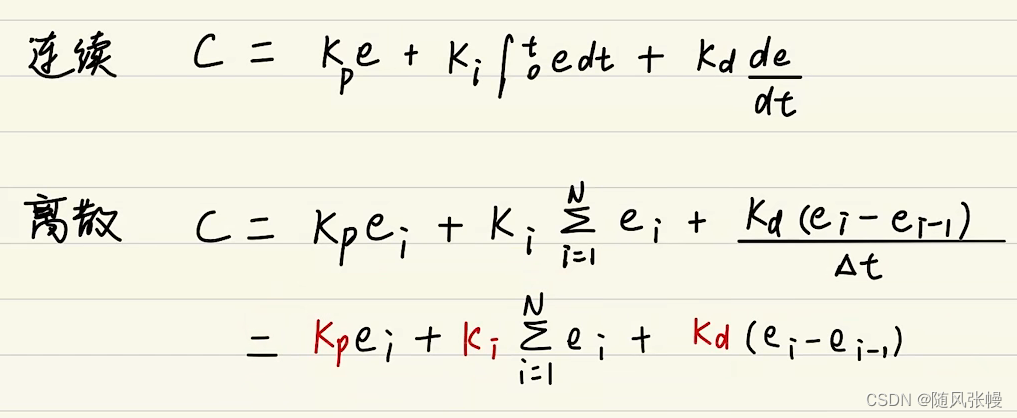 连续 C = Kpe + Ki∫₀ᵗ edt + Kd de/dt
离散 C = Kpeᵢ + Kᵢ ∑ᵢ₌₁ᴺ eᵢ + Kd(eᵢ - eᵢ₋₁)/Δt
= Kpeᵢ + Kᵢ ∑ᵢ₌₁ᴺ eᵢ + Kd(eᵢ - eᵢ₋₁)
CSDN @随风张幔